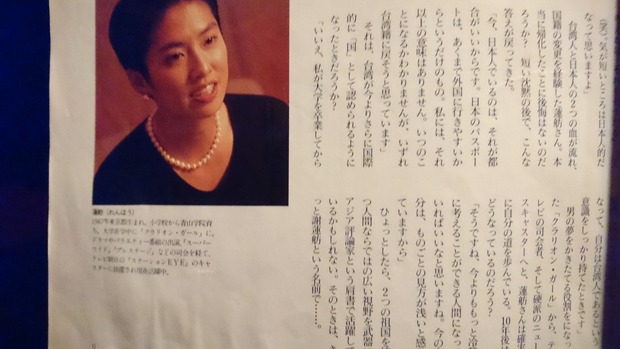 (笑)。気が短いところは日本人的だ
なって思いますよ」
台湾人と日本人の2つの血が流れ、
国籍の変更を経験した蓮舫さん。本
当に帰化したことに後悔はないのだ
ろうか? 短い沈黙の後で、こんな
答えが戻ってきた。
「今、日本人でいるのは、それが都
合がいいからです。日本のパスポー
トは、あくまで外国に行きやすいか
らというだけのもの。私には、それ
以上の意味はありません。いつのこ
とになるかわかりませんが、いずれ
台湾籍に戻そうと思っています」
それは、台湾が今よりさらに国際
的に「国」として認められるように
なったときだろうか?
「いいえ、私が大学を卒業してから
なって、自分は台湾人であるという
意識をしっかり持てたときです」
男の夢をかきたてる役割をになっ
た『クラリオン・ガール』から、テ
レビの司会者、そして硬派のニュー
スキャスターへと、蓮舫さんは確実
に自分の道を歩んでいる。10年後は
どうなっているのだろう?
「そうですね、今よりももっと冷
に考えることができる人間になっ
いればいいなと思いますね。今の
分は、ものごとの見方が浅いと感
ていますから」
ひょっとしたら、2つの祖国を
つ人間ならではの広い視野を武器
アジア評論家という肩書で活躍して
るかもしれない。そのときは、き
っと謝蓮舫という名前で……。
蓮舫(れんほう)
1967年東京都生まれ。小学校から青山学院育
ち。大学在学中に『クラリオン・ガール』に。
ドラマやバラエティー番組の出演、『スーパー
ワイド』『プレステージ』などの司会を経て、
テレビ朝日の『ステーションEYE』のキャ
スターに抜擢され現在活躍中。